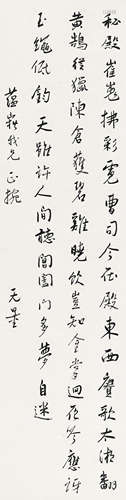 秘殿崔嵬拂彩霓曹司今在殿東西賡歌太液翻
黃鵠從獵陳倉獲碧雞曉飲豈知金掌迥夜吟應訝
玉繩低鈞天雖許人間聽閶闔門多夢自迷
我兄正腕
无量